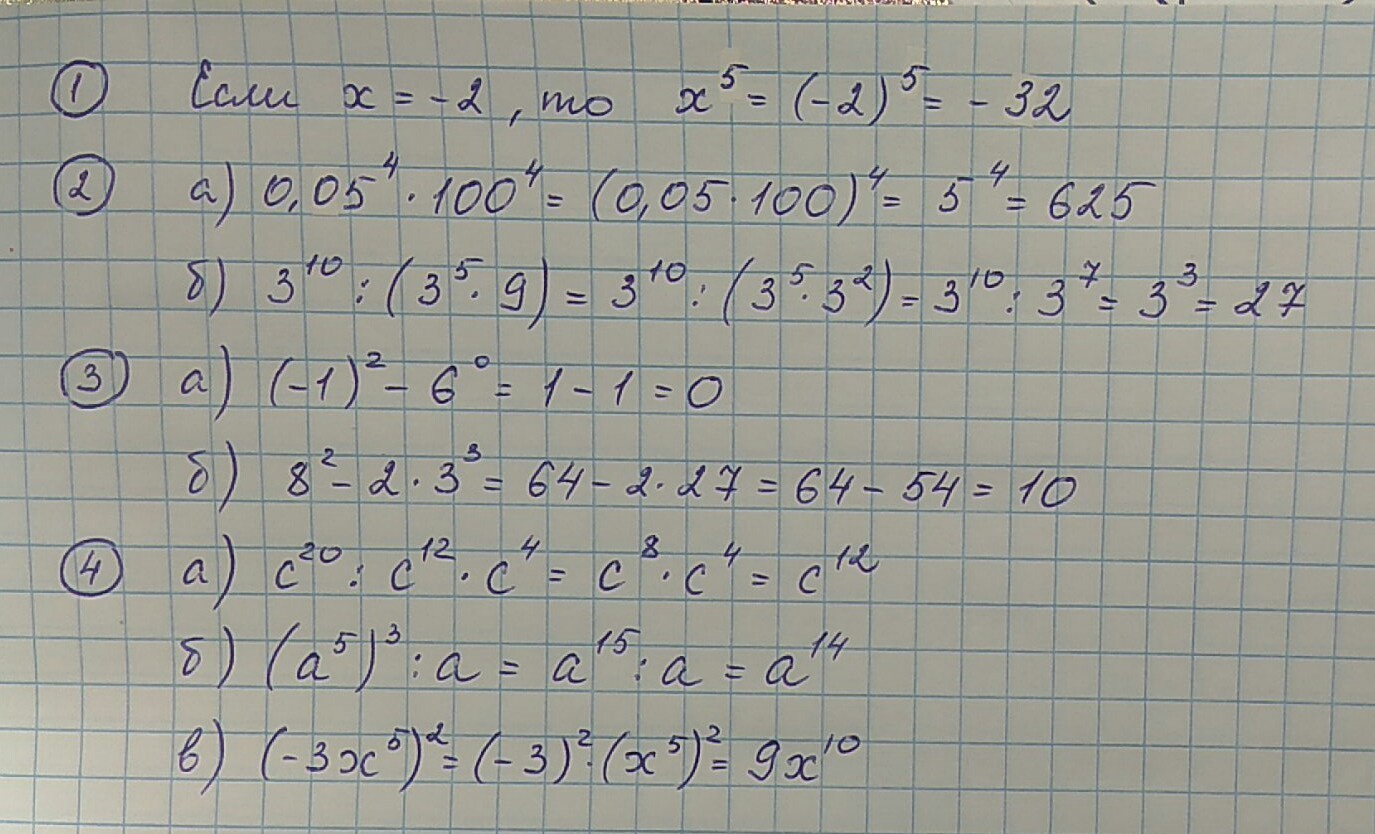 ① Если x = -2, то x⁵ = (-2)⁵ = -32
② а) 0,05⁴ · 100⁴ = (0,05 · 100)⁴ = 5⁴ = 625
б) 3¹⁰ : (3⁵ · 9) = 3¹⁰ : (3⁵ · 3²) = 3¹⁰ : 3⁷ = 3³ = 27
③ а) (-1)² - 6⁰ = 1 - 1 = 0
б) 8² - 2 · 3³ = 64 - 2 · 27 = 64 - 54 = 10
④ а) c²⁰ : c¹² · c⁴ = c⁸ · c⁴ = c¹²
б) (a⁵)³ : a = a¹⁵ : a = a¹⁴
в) (-3x⁵)² = (-3)² · (x⁵)² = 9x¹⁰